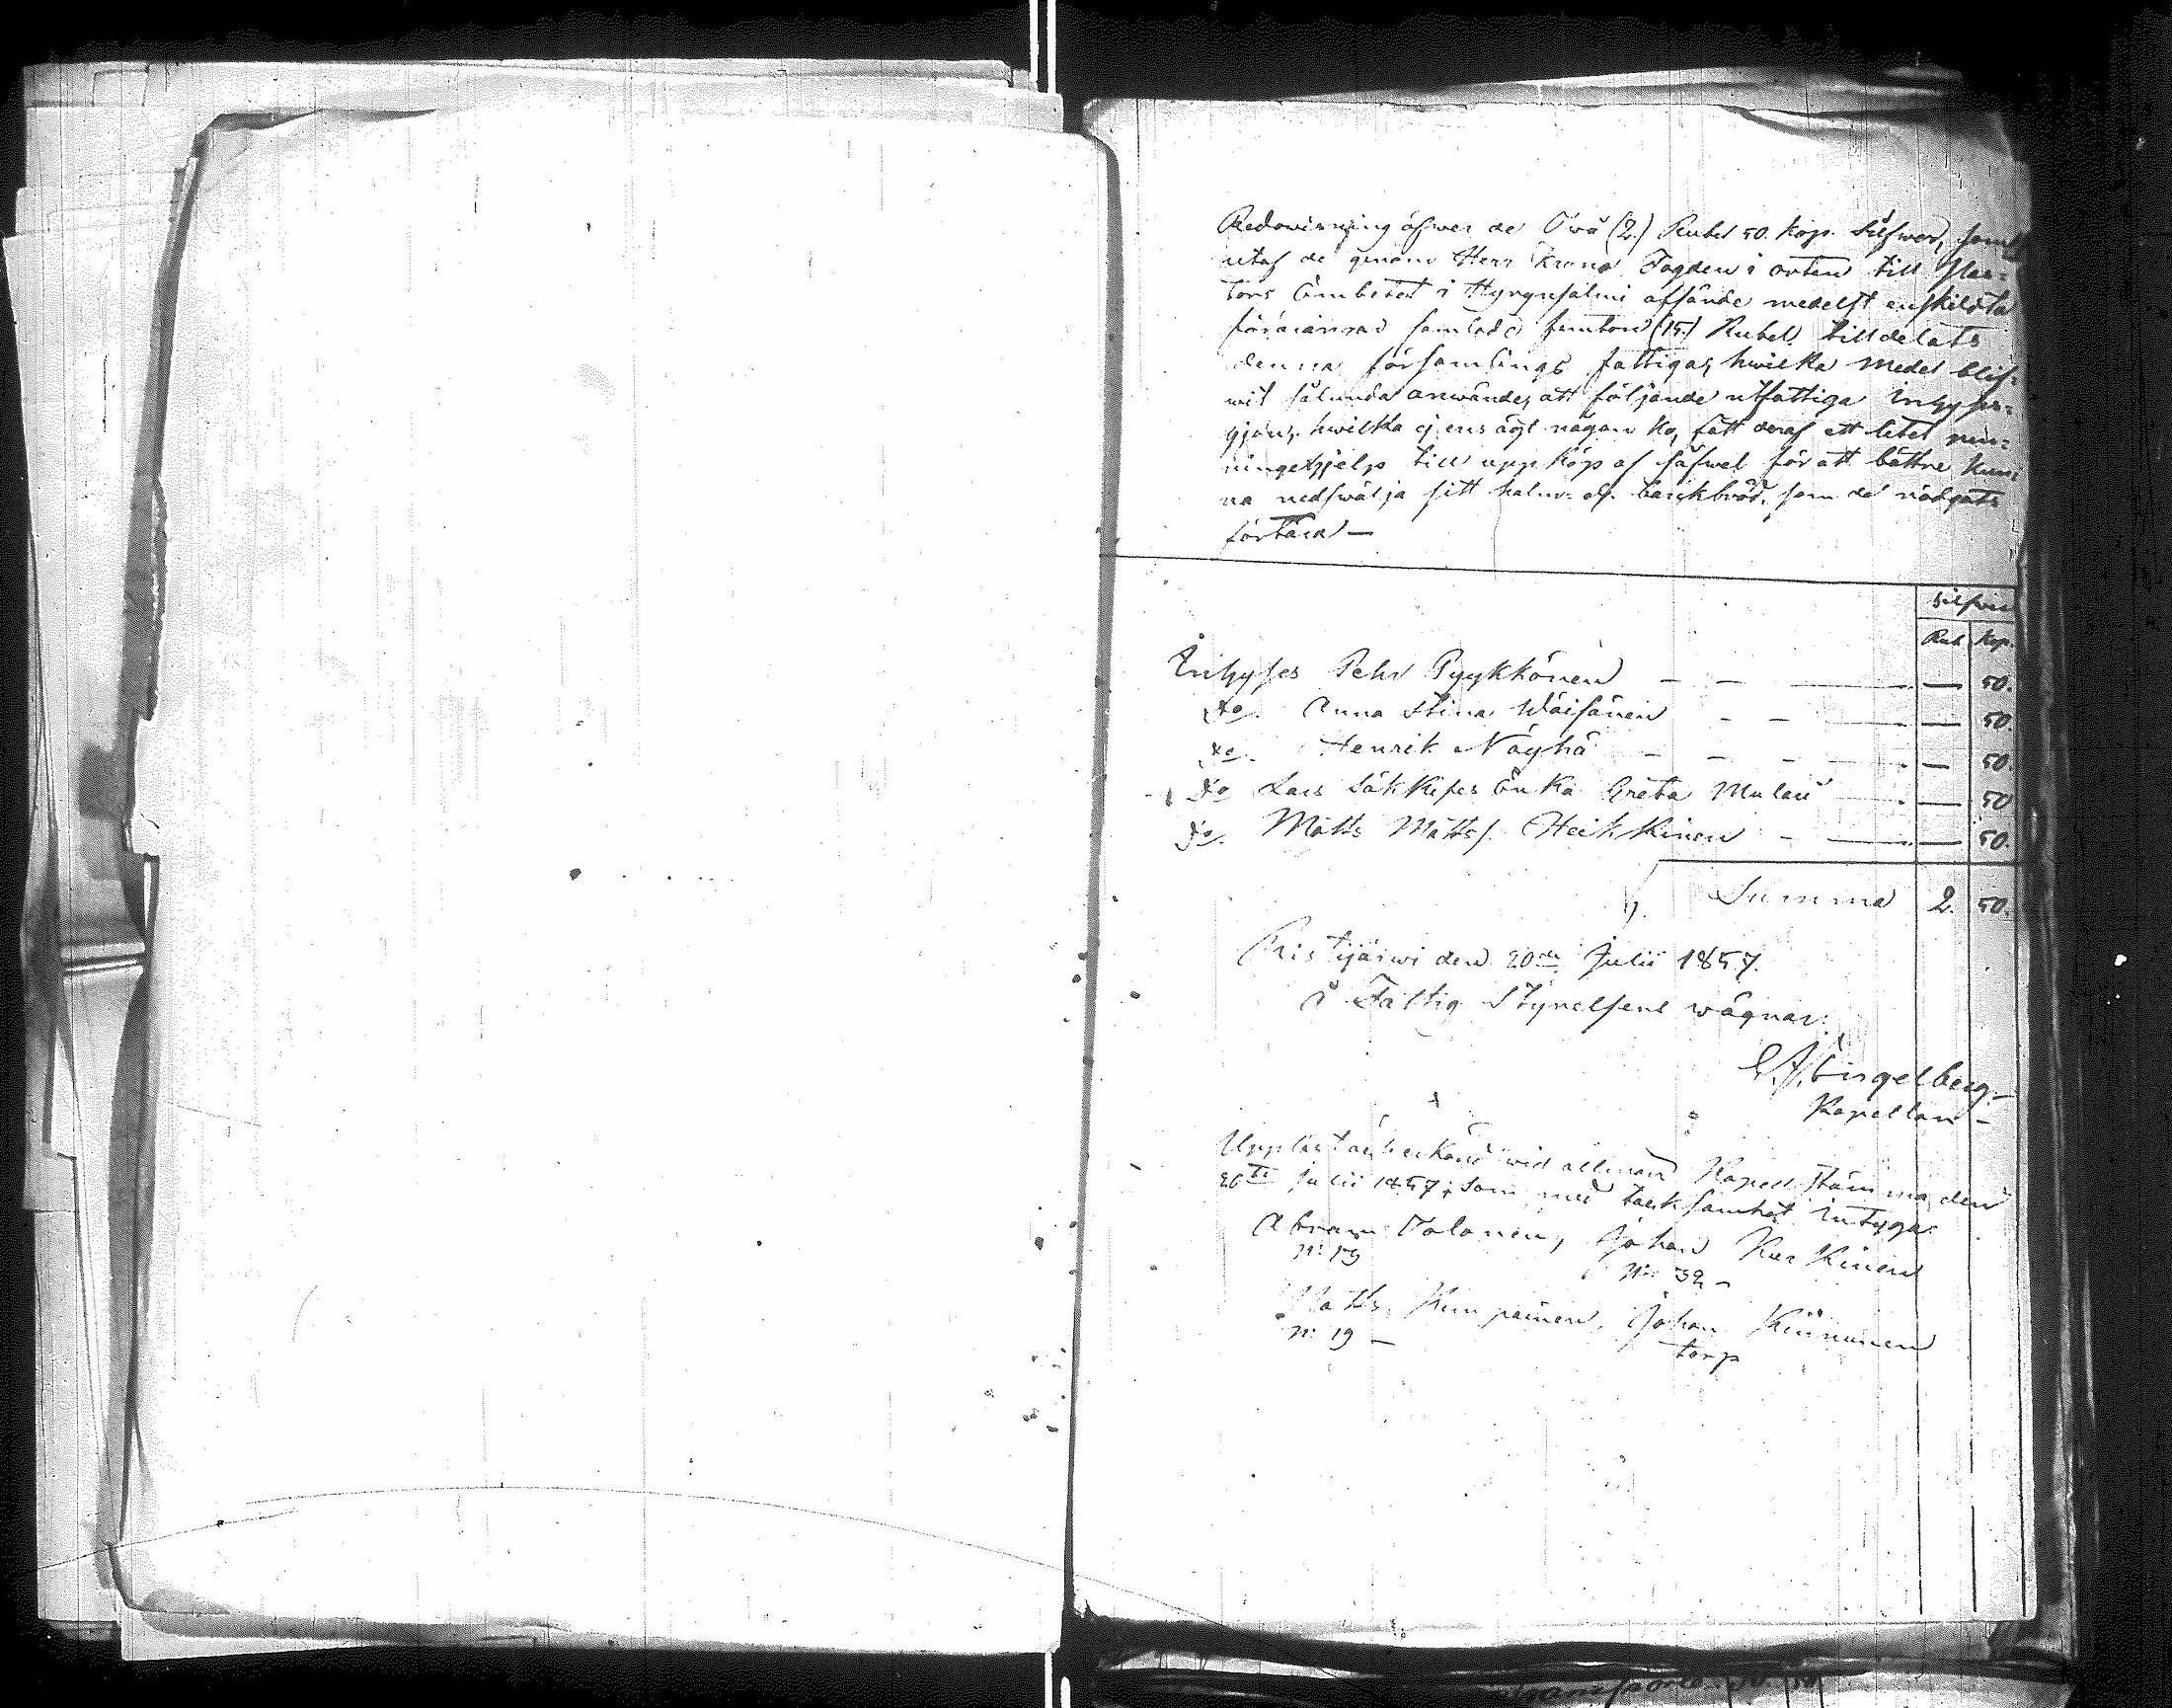 Redovisning öfwer de Två (2.) Rubel 50. kop. Silfwer, som
utaf de genom Herr Krono Fogden i orten till Pas-
tors Embetet i Hyrynsalmi afsände medelst enskildta
förärarar samlade femton (15.) Rubel tilldelats
denna församlings fattiga, hwilka medel blif-
wit sålunda anwände, att följande utfattiga Inhyses-
hjon, hwilka ej ens ägt någon ko, fått deraf ett litet pen-
ningehjelp till uppköp af säfwel för att bättre kun-
na nedswälja sitt halm- of. barkbröd, som de nödgats
förtära —
Silfwer
Rub. Kop.
Inhyses Pehr Pyykkönen — — — 50.
do. Anna Stina Wäisänen — — — 50.
do. Henrik Näyhä — — — — 50.
do Lars Säkkises Enka Greta Mulari — 50
do. Matts Mattss. Heikkinen — — 50.
Summa 2. 50.
Ristijärwi den 20de Julii 1857.
å Fattig Styrelsens wägnar:
Engelberg —
Kapellan —
Uppläst wid allmän Kapell stämma den
26te Julii 1857; som med tacksamhet intyga:
Abram Tolonen, Johan Kurkinen
No 32 —
Matts Kumpainen, Johan Kinnunen
No 19 — torp